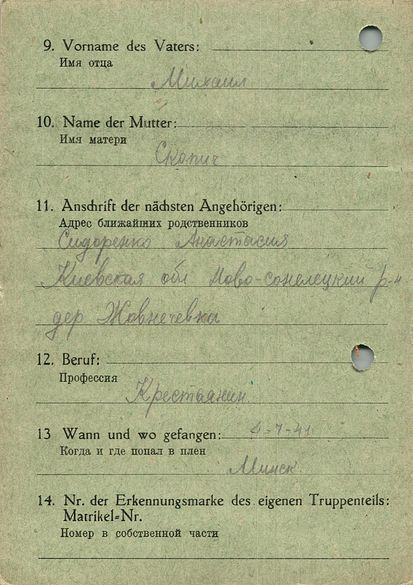 9. Vorname des Vaters:
Имя отца
Михаил
10. Name der Mutter:
Имя матери
Скопич
11. Anschrift der nächsten Angehörigen:
Адрес ближайших родственников
Сидоренко Анастасия
Киевская обл Ново-сонелецкий р-н
дер Жовнечевка
12. Beruf:
Профессия
Крестьянин
13 Wann und wo gefangen: 4-7-41
Когда и где попал в плен
Минск
14. Nr. der Erkennungsmarke des eigenen Truppenteils:
Matrikel=Nr.
Номер в собственной части